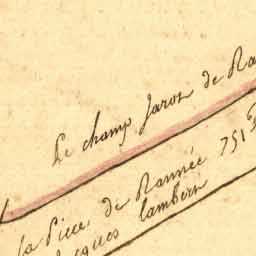 Le champ Jaron de Ra
la Piece de Rannée 751
Jacques Lambert